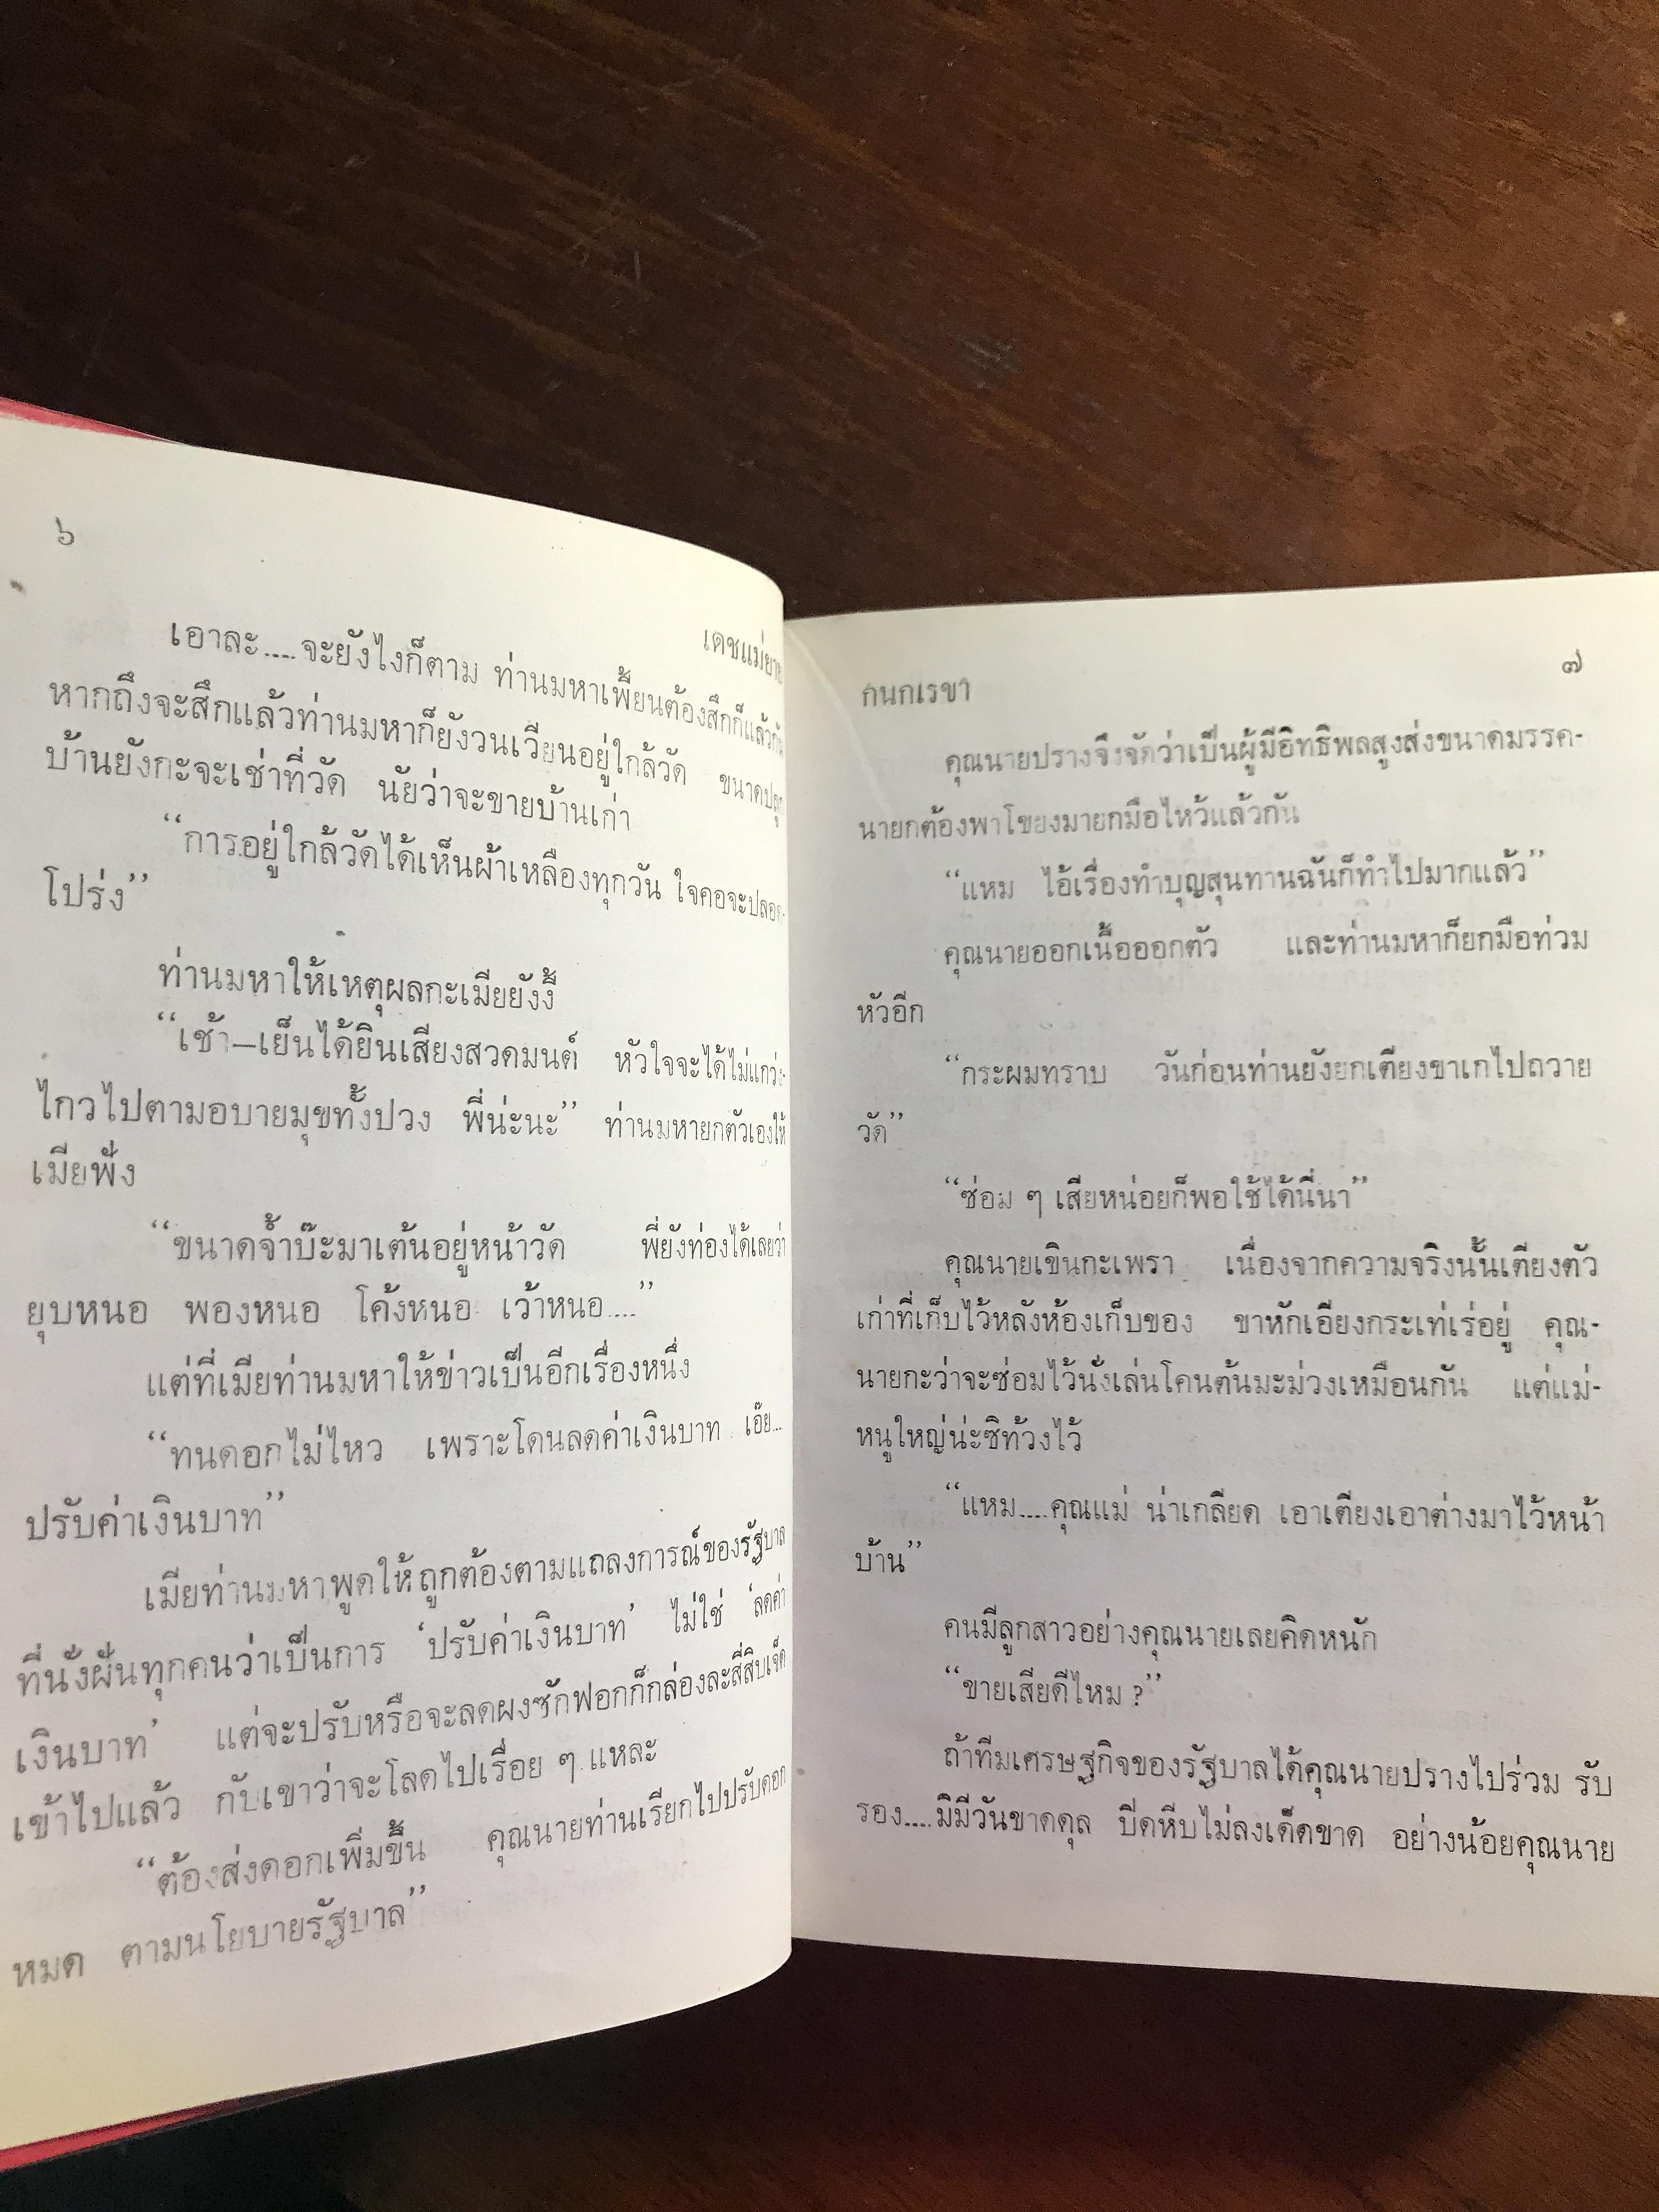 ๖
เดชแม่ยาย
เอาละ....จะยังไงก็ตาม ท่านมหาเพี้ยนต้องสึกก็แล้วกัน
หากถึงจะสึกแล้วท่านมหาก็ยังวนเวียนอยู่ใกล้วัด ขนาดปลูก
บ้านยังกะจะเช่าที่วัด นัยว่าจะขายบ้านเก่า
“การอยู่ใกล้วัดได้เห็นผ้าเหลืองทุกวัน ใจคอจะปลอด-
โปร่ง”
ท่านมหาให้เหตุผลกะเมียยังงี้
“เช้า—เย็นได้ยินเสียงสวดมนต์ หัวใจจะได้ไม่แกว่ง-
ไกวไปตามอบายมุขทั้งปวง พี่น่ะนะ” ท่านมหายกตัวเองให้
เมียฟัง
“ขนาดจ้ำบ๊ะมาเต้นอยู่หน้าวัด พี่ยังท่องได้เลยว่า
ยุบหนอ พองหนอ โค้งหนอ เว้าหนอ....”
แต่ที่เมียท่านมหาให้ข่าวเป็นอีกเรื่องหนึ่ง
“ทนดอกไม่ไหว เพราะโดนลดค่าเงินบาท เอ๊ย...
ปรับค่าเงินบาท”
เมียท่านมหาพูดให้ถูกต้องตามแถลงการณ์ของรัฐบาล
ที่นั่งฝันทุกคนว่าเป็นการ ‘ปรับค่าเงินบาท’ ไม่ใช่ ‘ลดค่า
เงินบาท’ แต่จะปรับหรือจะลดผงซักฟอกก็กล่องละสี่สิบเจ็ด
เข้าไปแล้ว กับเขาว่าจะโลดไปเรื่อย ๆ แหละ
“ต้องส่งดอกเพิ่มขึ้น คุณนายท่านเรียกไปปรับดอก
หมด ตามนโยบายรัฐบาล”
กนกเรขา
๗
คุณนายปรางจึงจัดว่าเป็นผู้มีอิทธิพลสูงส่งขนาดมรรค-
นายกต้องพาโขยงมายกมือไหว้แล้วกัน
“แหม ไอ้เรื่องทำบุญสุนทานฉันก็ทำไปมากแล้ว”
คุณนายออกเนื้อออกตัว และท่านมหาก็ยกมือท่วม
หัวอีก
“กระผมทราบ วันก่อนท่านยังยกเตียงขาเกไปถวาย
วัด”
“ซ่อม ๆ เสียหน่อยก็พอใช้ได้นี่นา”
คุณนายเขินกะเพรา เนื่องจากความจริงนั้นเตียงตัว
เก่าที่เก็บไว้หลังห้องเก็บของ ขาหักเอียงกระเท่เร่อยู่ คุณ-
นายกะว่าจะซ่อมไว้นั่งเล่นโคนต้นมะม่วงเหมือนกัน แต่แม่-
หนูใหญ่น่ะซิท้วงไว้
“แหม....คุณแม่ น่าเกลียด เอาเตียงเอาต่างมาไว้หน้า
บ้าน”
คนมีลูกสาวอย่างคุณนายเลยคิดหนัก
“ขายเสียดีไหม ?”
ถ้าทีมเศรษฐกิจของรัฐบาลได้คุณนายปรางไปร่วม รับ
รอง....มิมีวันขาดดุล ปิดหีบไม่ลงเด็ดขาด อย่างน้อยคุณนาย